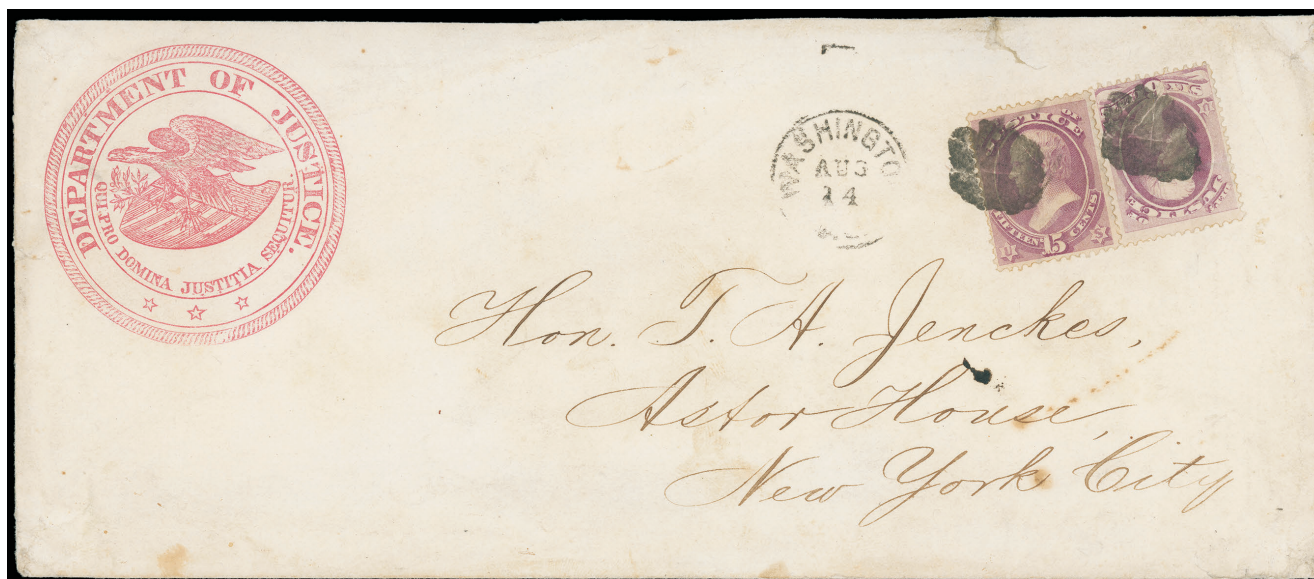 DEPARTMENT OF JUSTICE.
QUI PRO DOMINA JUSTITIA SEQUITUR.
WASHINGTO
AUG
14
FIFTEEN 15 CENTS
Hon. T. A. Jenckes,
Astor House,
New York City